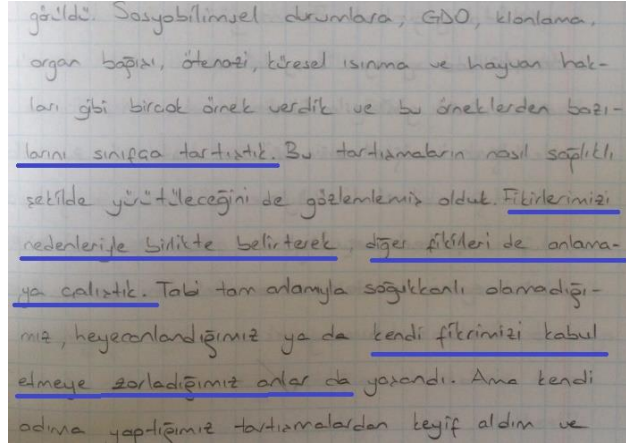 görüldü. Sosyobilimsel durumlara, GDO, klonlama,
organ bağışı, ötenazi, küresel ısınma ve hayvan hak-
ları gibi birçok örnek verdik ve bu örneklerden bazı-
larını sınıfça tartıştık. Bu tartışmaların nasıl sağlıklı
şekilde yürütüleceğini de gözlemlemiş olduk. Fikirlerimizi
nedenleriyle birlikte belirterek, diğer fikirleri de anlama-
ya çalıştık. Tabi tam anlamıyla soğukkanlı olamadığı-
mız, heyecanlandığımız ya da kendi fikrimizi kabul
etmeye zorladığımız anlar da yaşandı. Ama kendi
adıma yaptığımız tartışmalardan keyif aldım ve